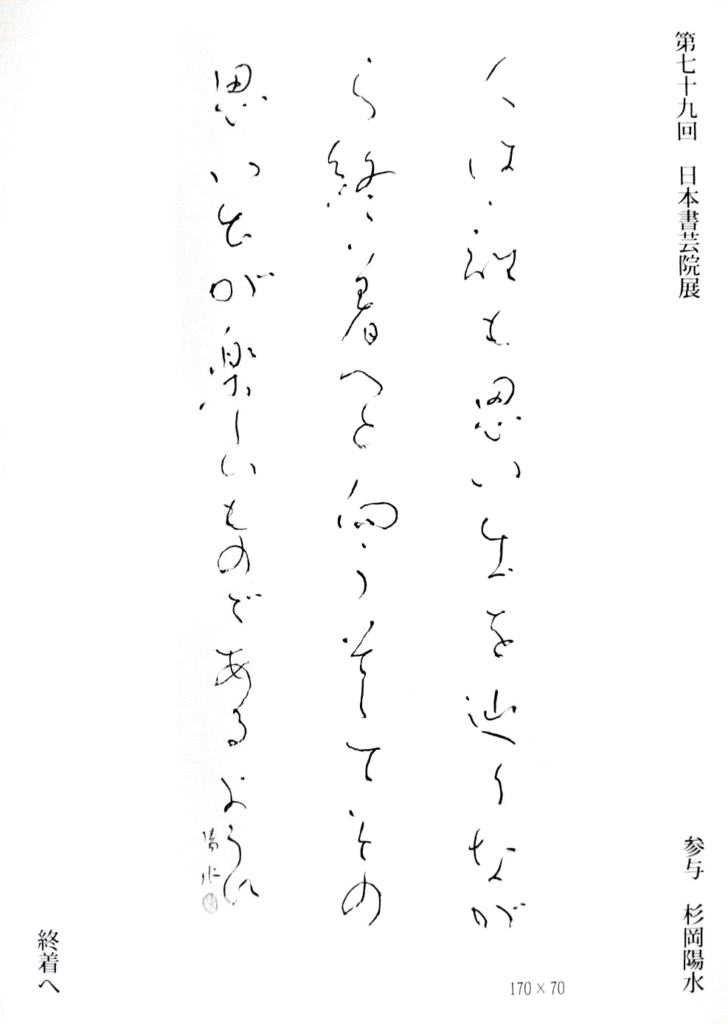 第七十九回 日本書芸院展
参与 杉岡陽水
人は誰も思い出を辿りなが
ら終い着へと向う そしてその
思い出が楽しいものであるように
陽水
170×70
終着へ